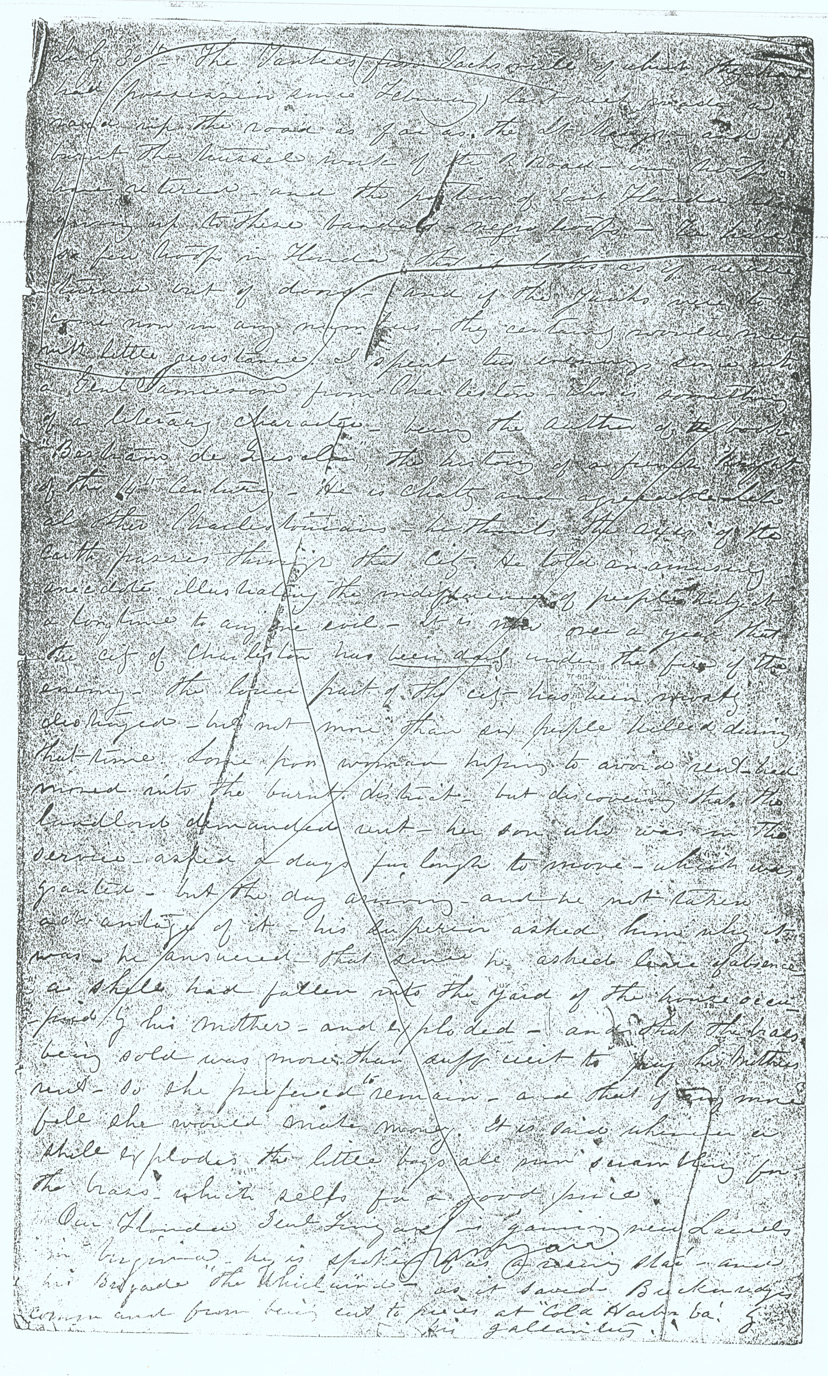 July 30th The Yankees from Jacksonville of which they have
had possession since February last have made a
up the road as far as the St Marys - and
burnt the trussel work of the R Road - our troops
have retired - and the portion of East Florida
given up to these - negro troops - There are
so few troops in Florida that it looks as if we were
turned out of doors - and if the Yanks were to
come now in any numbers - they certainly would meet
with little resistance. I spent two evenings since with
a Genl Jamieson from Charleston - who is something
of a literary character - being the author of the book
"Bertram de Guesclin" the history of a french Knight
of the 14th Century - He is chatty and agreeable - like
all other Charlestonians - he thinks the axis of the
earth passes through that city. He told an amusing
anecdote illustrating the indifference of people subject
a long time to any one evil - It is now over a year that
the city of Charleston has been daily under the fire of the
enemy - the lower part of the city has been mostly
destroyed - but not more than six people killed during
that time. Some poor woman hoping to avoid rent - had
moved into the burnt district - but discovering that the
landlord demanded rent - her son who was in the
service - asked a days furlough to move - which was
granted - but the day arriving - and he not taken
advantage of it - his superior asked him why it
was - he answered - that since he asked leave of absence
a shell had fallen into the yard of the house occu-
-pied by his mother - and exploded - and that the brass
being sold was more than sufficient to pay his Mothers
rent - so she preferred to remain - and that if any more
fell she would make money. It is said whenever a
shell explodes the little boys all run scrambling for
the brass - which sells for a good price
Our Florida Genl Finegan is gaining new Laurels
in Virginia, he is spoken of as a rising star - and
his Brigade "the Whirlwind" - as it saved Breckenridges
command from being cut to pieces at "Cold Harbor Va." by
his gallantry.